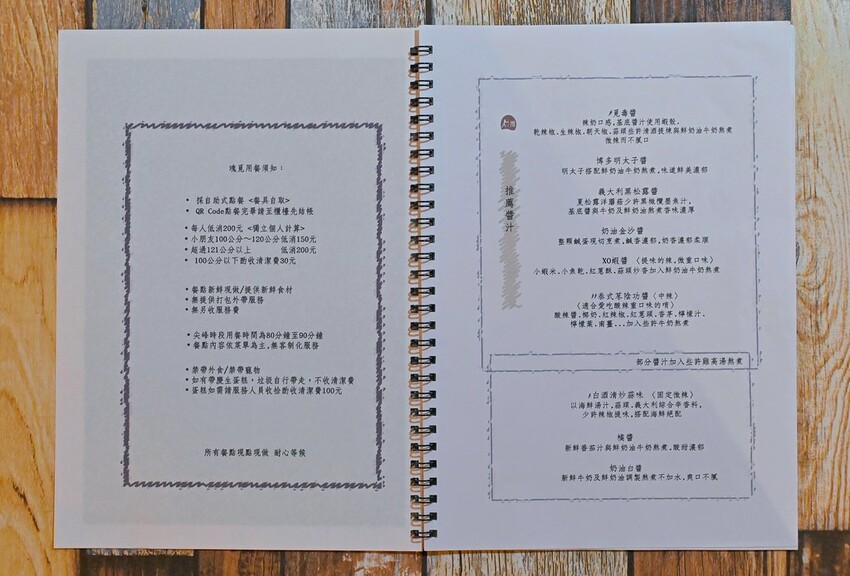 塊覓用餐須知：
• 採自助式點餐 <餐具自取>
• QR Code點餐完畢請至櫃檯先結帳
• 每人低消200元 <獨立個人計算>
• 小朋友100公分～120公分低消150元
• 超過121公分以上 低消200元
• 100公分以下酌收清潔費30元
• 餐點新鮮現做/提供新鮮食材
• 無提供打包外帶服務
• 無另收服務費
• 尖峰時段用餐時間為80分鐘至90分鐘
• 餐點內容依菜單為主,無客制化服務
• 禁帶外食/禁帶寵物
• 如有帶慶生蛋糕，垃圾自行帶走，不收清潔費
• 蛋糕如需請服務人員收拾酌收清潔費100元
所有餐點現點現做 耐心等候
推薦醬汁
覓毒醬
辣奶口感,基底醬汁使用蝦殼、
乾辣椒、生辣椒、朝天椒、蒜頭些許清酒提煉與鮮奶油牛奶熬煮
微辣而不膩口
博多明太子醬
明太子搭配鮮奶油牛奶熬煮,味道鮮美濃郁
義大利黑松露醬
夏松露洋蘑菇少許黑橄欖墨魚汁,
基底醬與牛奶及鮮奶油熬煮香味濃厚
奶油金沙醬
整顆鹹蛋現切烹煮,鹹香濃郁,奶香濃郁柔順
XO蝦醬 〈提味的辣,微重口味〉
小蝦米、小魚乾,紅蔥酥、蒜頭炒香加入鮮奶油牛奶熬煮
泰式冬陰功醬〈中辣〉
〈適合愛吃酸辣重口味的唷〉
酸辣醬,椰奶、紅辣椒,紅蔥頭、香茅、檸檬汁、
檸檬葉、南薑...加入些許牛奶熬煮
部分醬汁加入些許雞高湯熬煮
白酒清炒蒜味 〈固定微辣〉
以海鮮湯汁,蒜頭、義大利綜合辛香料,
少許辣椒提味,搭配海鮮絕配
橘醬
新鮮番茄汁與鮮奶油牛奶熬煮,酸甜濃郁
奶油白醬
新鮮牛奶及鮮奶油調製熬煮不加水,爽口不膩